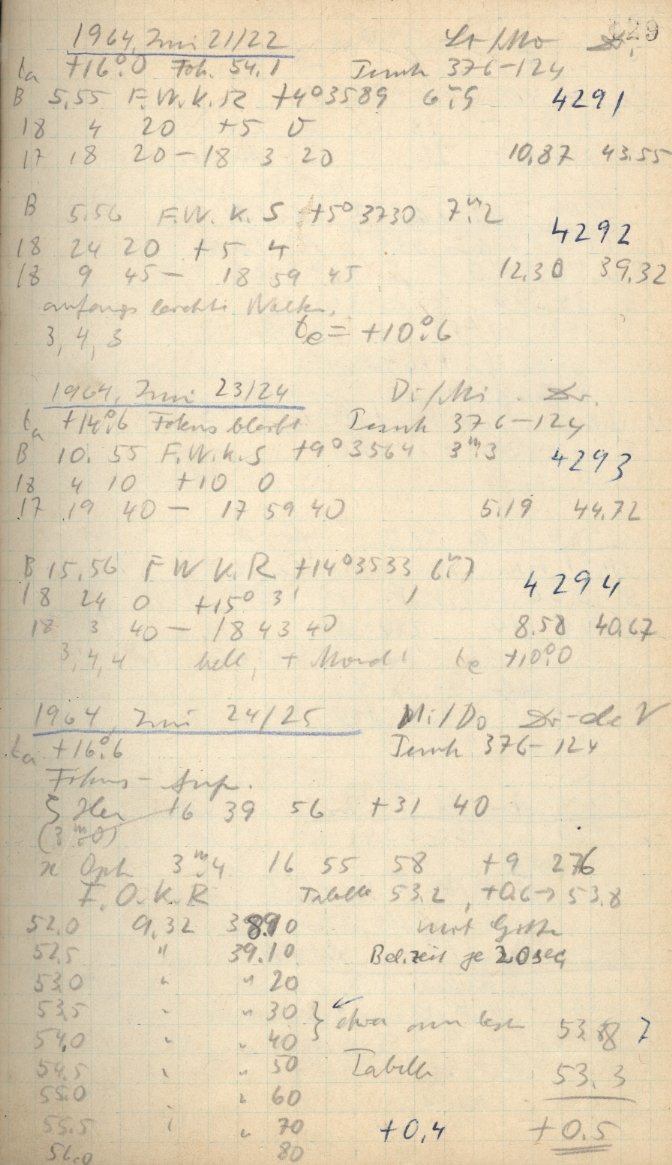 29
1964, Juni 21/22
ta +16°.0 Fok. 54.1 376-124
B 5.55 F.W.K.R +4°3589 6m.9 4291
18 4 20 +5 0
17 18 20 - 18 3 20 10.87 43.55
B 5.56 F.W.K.S +5°3730 7m.2 4292
18 24 20 +5 4
18 9 45 - 18 59 45 12.30 39.32
anfangs leichte Wolken.
3, 4, 3 te = +10°.6
1964, Juni 23/24 Di/Mi Dr.
ta +14°.6 Fokus bleibt 376-124
B 10.55 F.W.K.S +9°3564 3m.3 4293
18 4 10 +10 0
17 19 40 - 17 59 40 5.19 44.72
B 15.56 F W K.R +14°3533 6m.7 4294
18 24 0 +15° 3'
18 3 40 - 18 43 40 8.58 40.67
3, 4, 4 hell, + Mond! te +10°.0
1964, Juni 24/25 Mi/Do Dr-de V
ta +16°.6 376-124
Fokus-Aufn.
ζ Her 16 39 56 +31 40
(3m.0)
κ Oph 3m.4 16 55 58 +9 26
F.O.K.R Tabelle 53.2, +0.6 → 53.8
52.0 9.32 38.90 mit Gitter
52.5 " 39.10 Bel.zeit je 20sec
53.0 " " 20
53.5 " " 30
54.0 " " 40 } etwa am besten 53.8 7
54.5 " " 50 Tabelle 53.3
55.0 " 60
55.5 " " 70 +0,4 +0.5
56.0 80